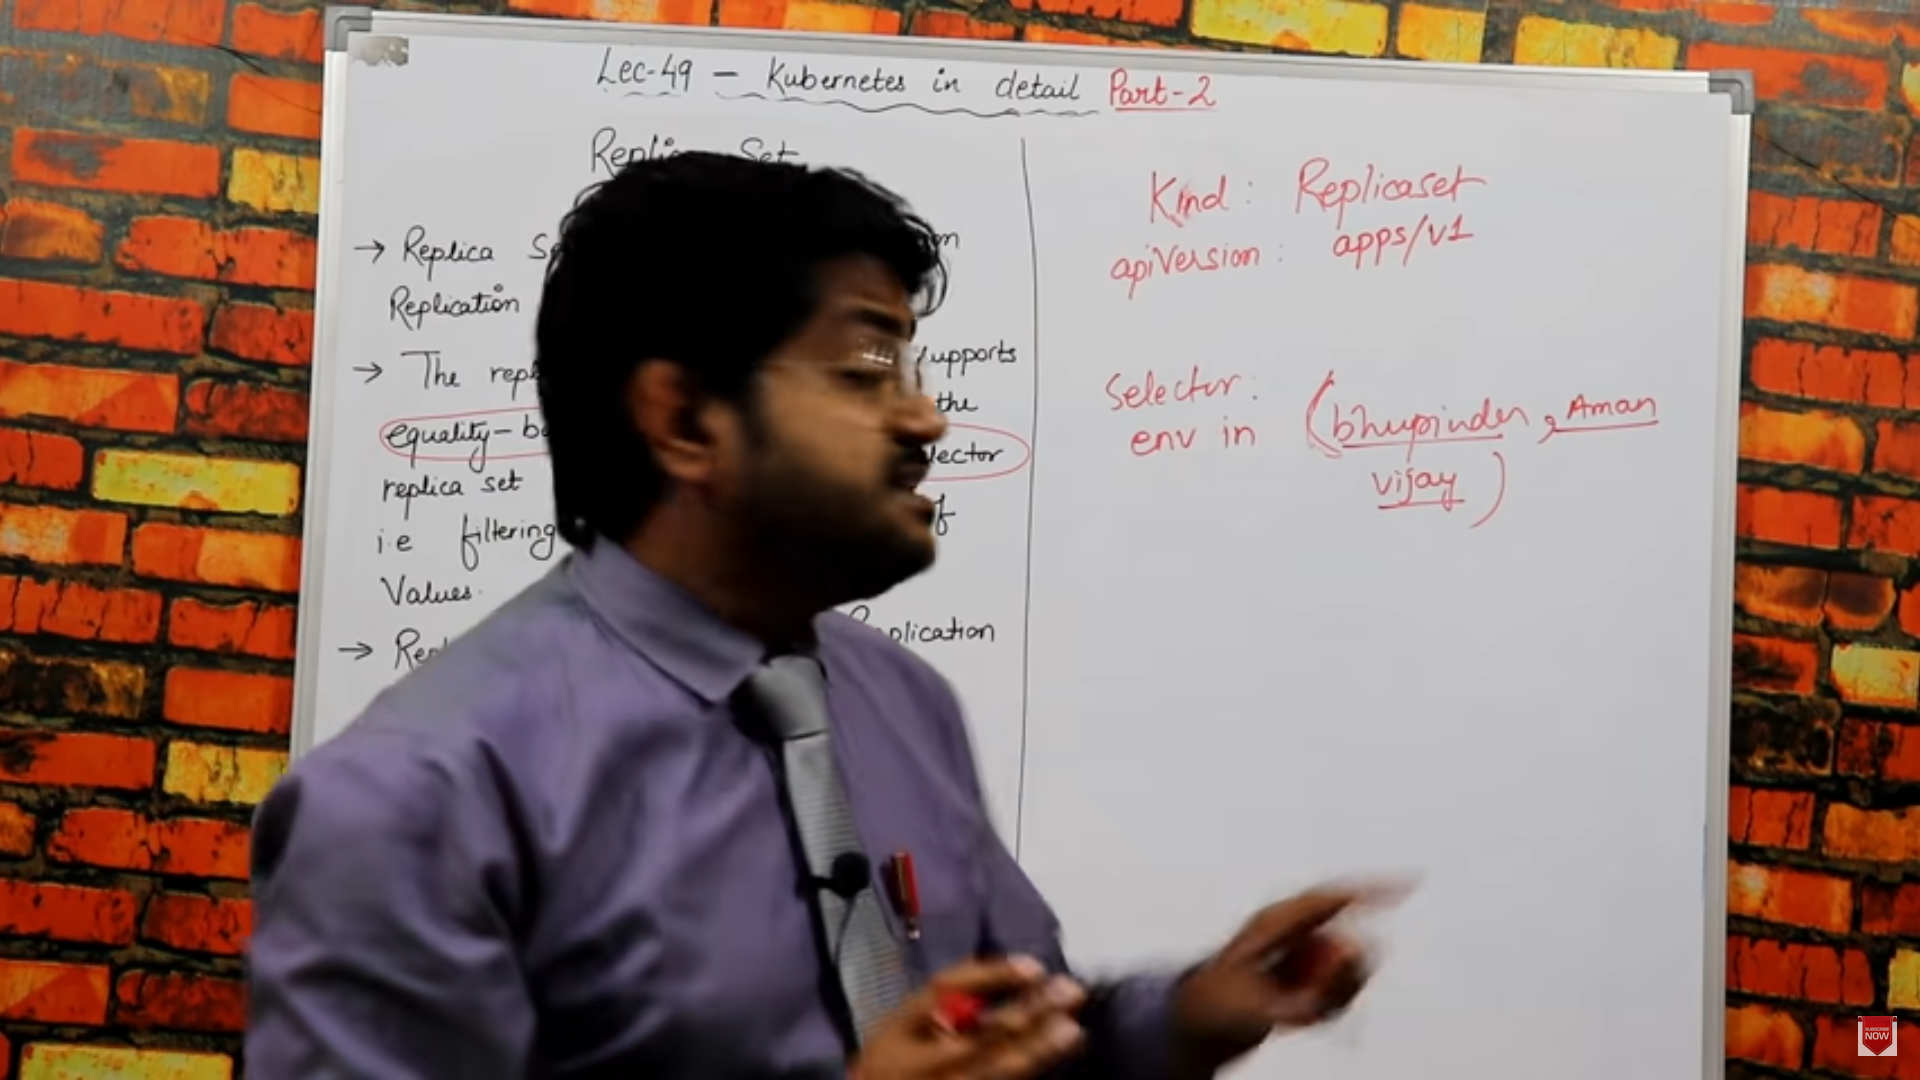 Lec-49 - Kubernetes in detail Part-2
Set
→ Replica
Replication
→ The supports
the
equality-
lector
replica set
i.e filtering of
Values.
→ Replication
Kind: Replicaset
apiVersion: apps/v1
Selector:
env in (bhupinder, Aman
vijay)
SUBSCRIBE
NOW